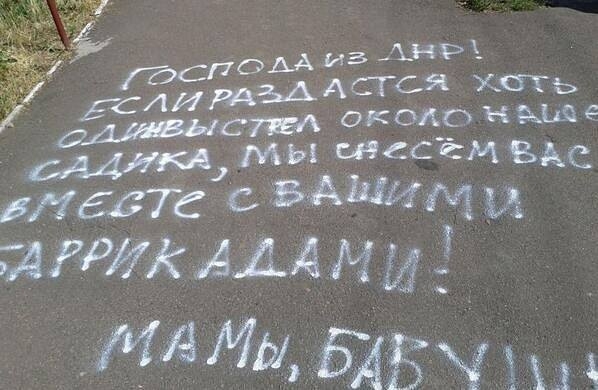 ГОСПОДА ИЗ ДНР!
ЕСЛИ РАЗДАСТСЯ ХОТЬ
ОДИН ВЫСТРЕЛ ОКОЛО НАШЕ
САДИКА, МЫ СНЕСЁМ ВАС
ВМЕСТЕ С ВАШИМИ
БАРРИКАДАМИ!
МАМЫ, БАБУШ